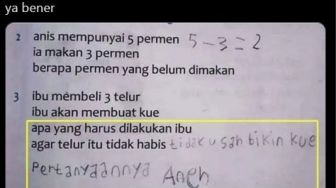 ya bener
2 anis mempunyai 5 permen 5 - 3 = 2
ia makan 3 permen
berapa permen yang belum dimakan
3 ibu membeli 3 telur
ibu akan membuat kue
apa yang harus dilakukan ibu
agar telur itu tidak habis tidak usah bikin kue
Pertanyaannya Aneh